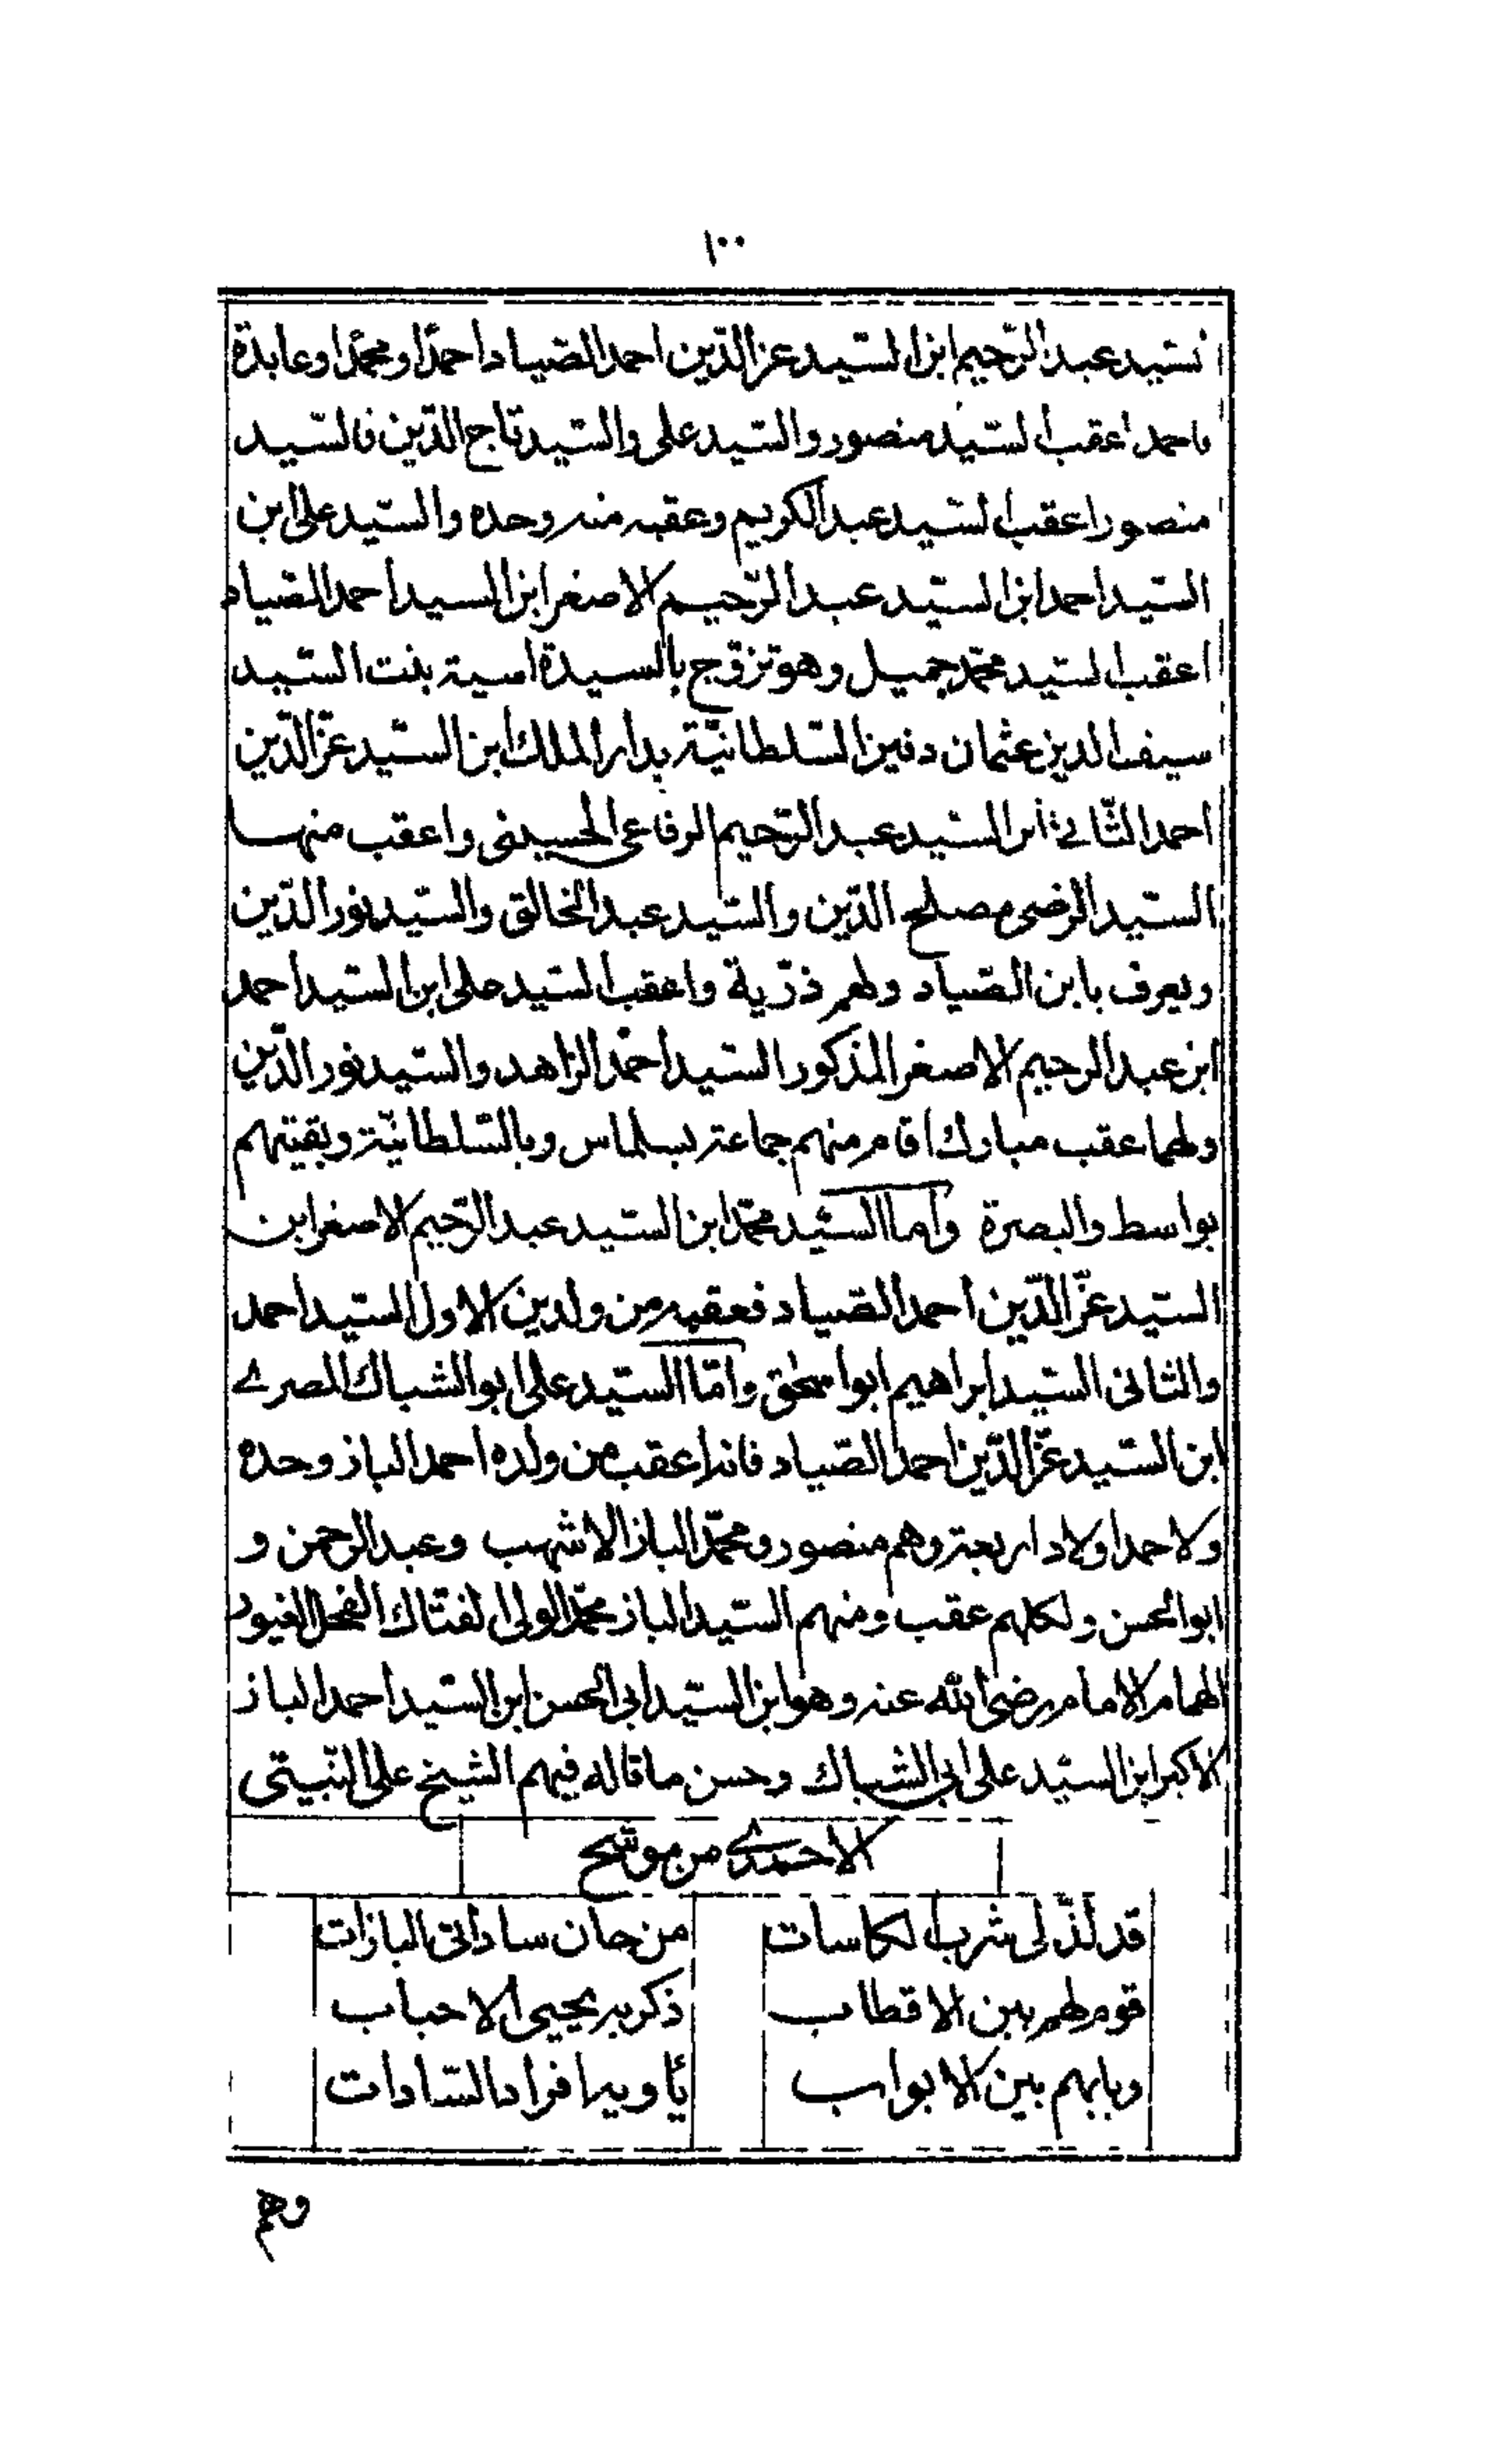 ١٠٠
السيد عبد الرّحيم ابن السّيد عز الدّين احمد الصّياد احمدًا ومحمّدًا وعابدة
فاحمد اعقب السّيد منصور والسّيد على والسّيد تاج الدّين فالسّيد
منصور اعقب السّيد عبد الكريم وعقبه منه وحده والسّيد على ابن
السّيد احمد ابن السّيد عبد الرّحيم الاصغر ابن السيد احمد الصّياد
اعقب السّيد محمّد جميل وهو تزوّج بالسيدة اسية بنت السّيد
سيف الدين عثمان دفين السّلطانيّة بدار الملك ابن السّيد عزّ الدّين
احمد الثّانى ابن السّيد عبد الرّحيم الرفاعى الحسينى واعقب منها
السّيد الرضى مصلح الدّين والسّيد عبد الخالق والسّيد نور الدّين
ويعرف بابن الصّياد ولهم ذرّية واعقب السّيد على ابن السّيد احمد
ابن عبد الرحيم الاصغر المذكور السّيد احمد الزاهد والسّيد نور الدّين
ولهما عقب مبارك اقام منهم جماعة بسلماس وبالسّلطانيّة وبقيتهم
بواسط والبصرة واما السّيد محمّد ابن السّيد عبد الرّحيم الاصغر ابن
السّيد عزّ الدّين احمد الصّياد فعقبه من ولدين الاول السّيد احمد
والثانى السّيد ابراهيم ابو اسحٰق وامّا السّيد على ابو الشباك المصرى
ابن السّيد عزّ الدّين احمد الصّياد فانه اعقب من ولده احمد الباز وحده
ولاحمد اولاد اربعة وهم منصور ومحمّد الباز الاشهب وعبد الرحمن و
ابو الحسن ولكلهم عقب ومنهم السّيد الباز محمّد الولى الفتّاك الفحل الغيور
الهمام الامام رضى الله عنه وهو ابن السّيد ابى الحسن ابن السّيد احمد الباز
الاكبر ابن السّيد على ابى الشباك وحسن ما قاله فيهم الشيخ على
الاحمدى من موشح
قد لذّ لى شرب الكاسات من حان ساداتى البازات
قوم لهم بين الاقطاب ذكر به يحيى الاحباب
وبابهم بين الابواب افراد السّادات
وهم